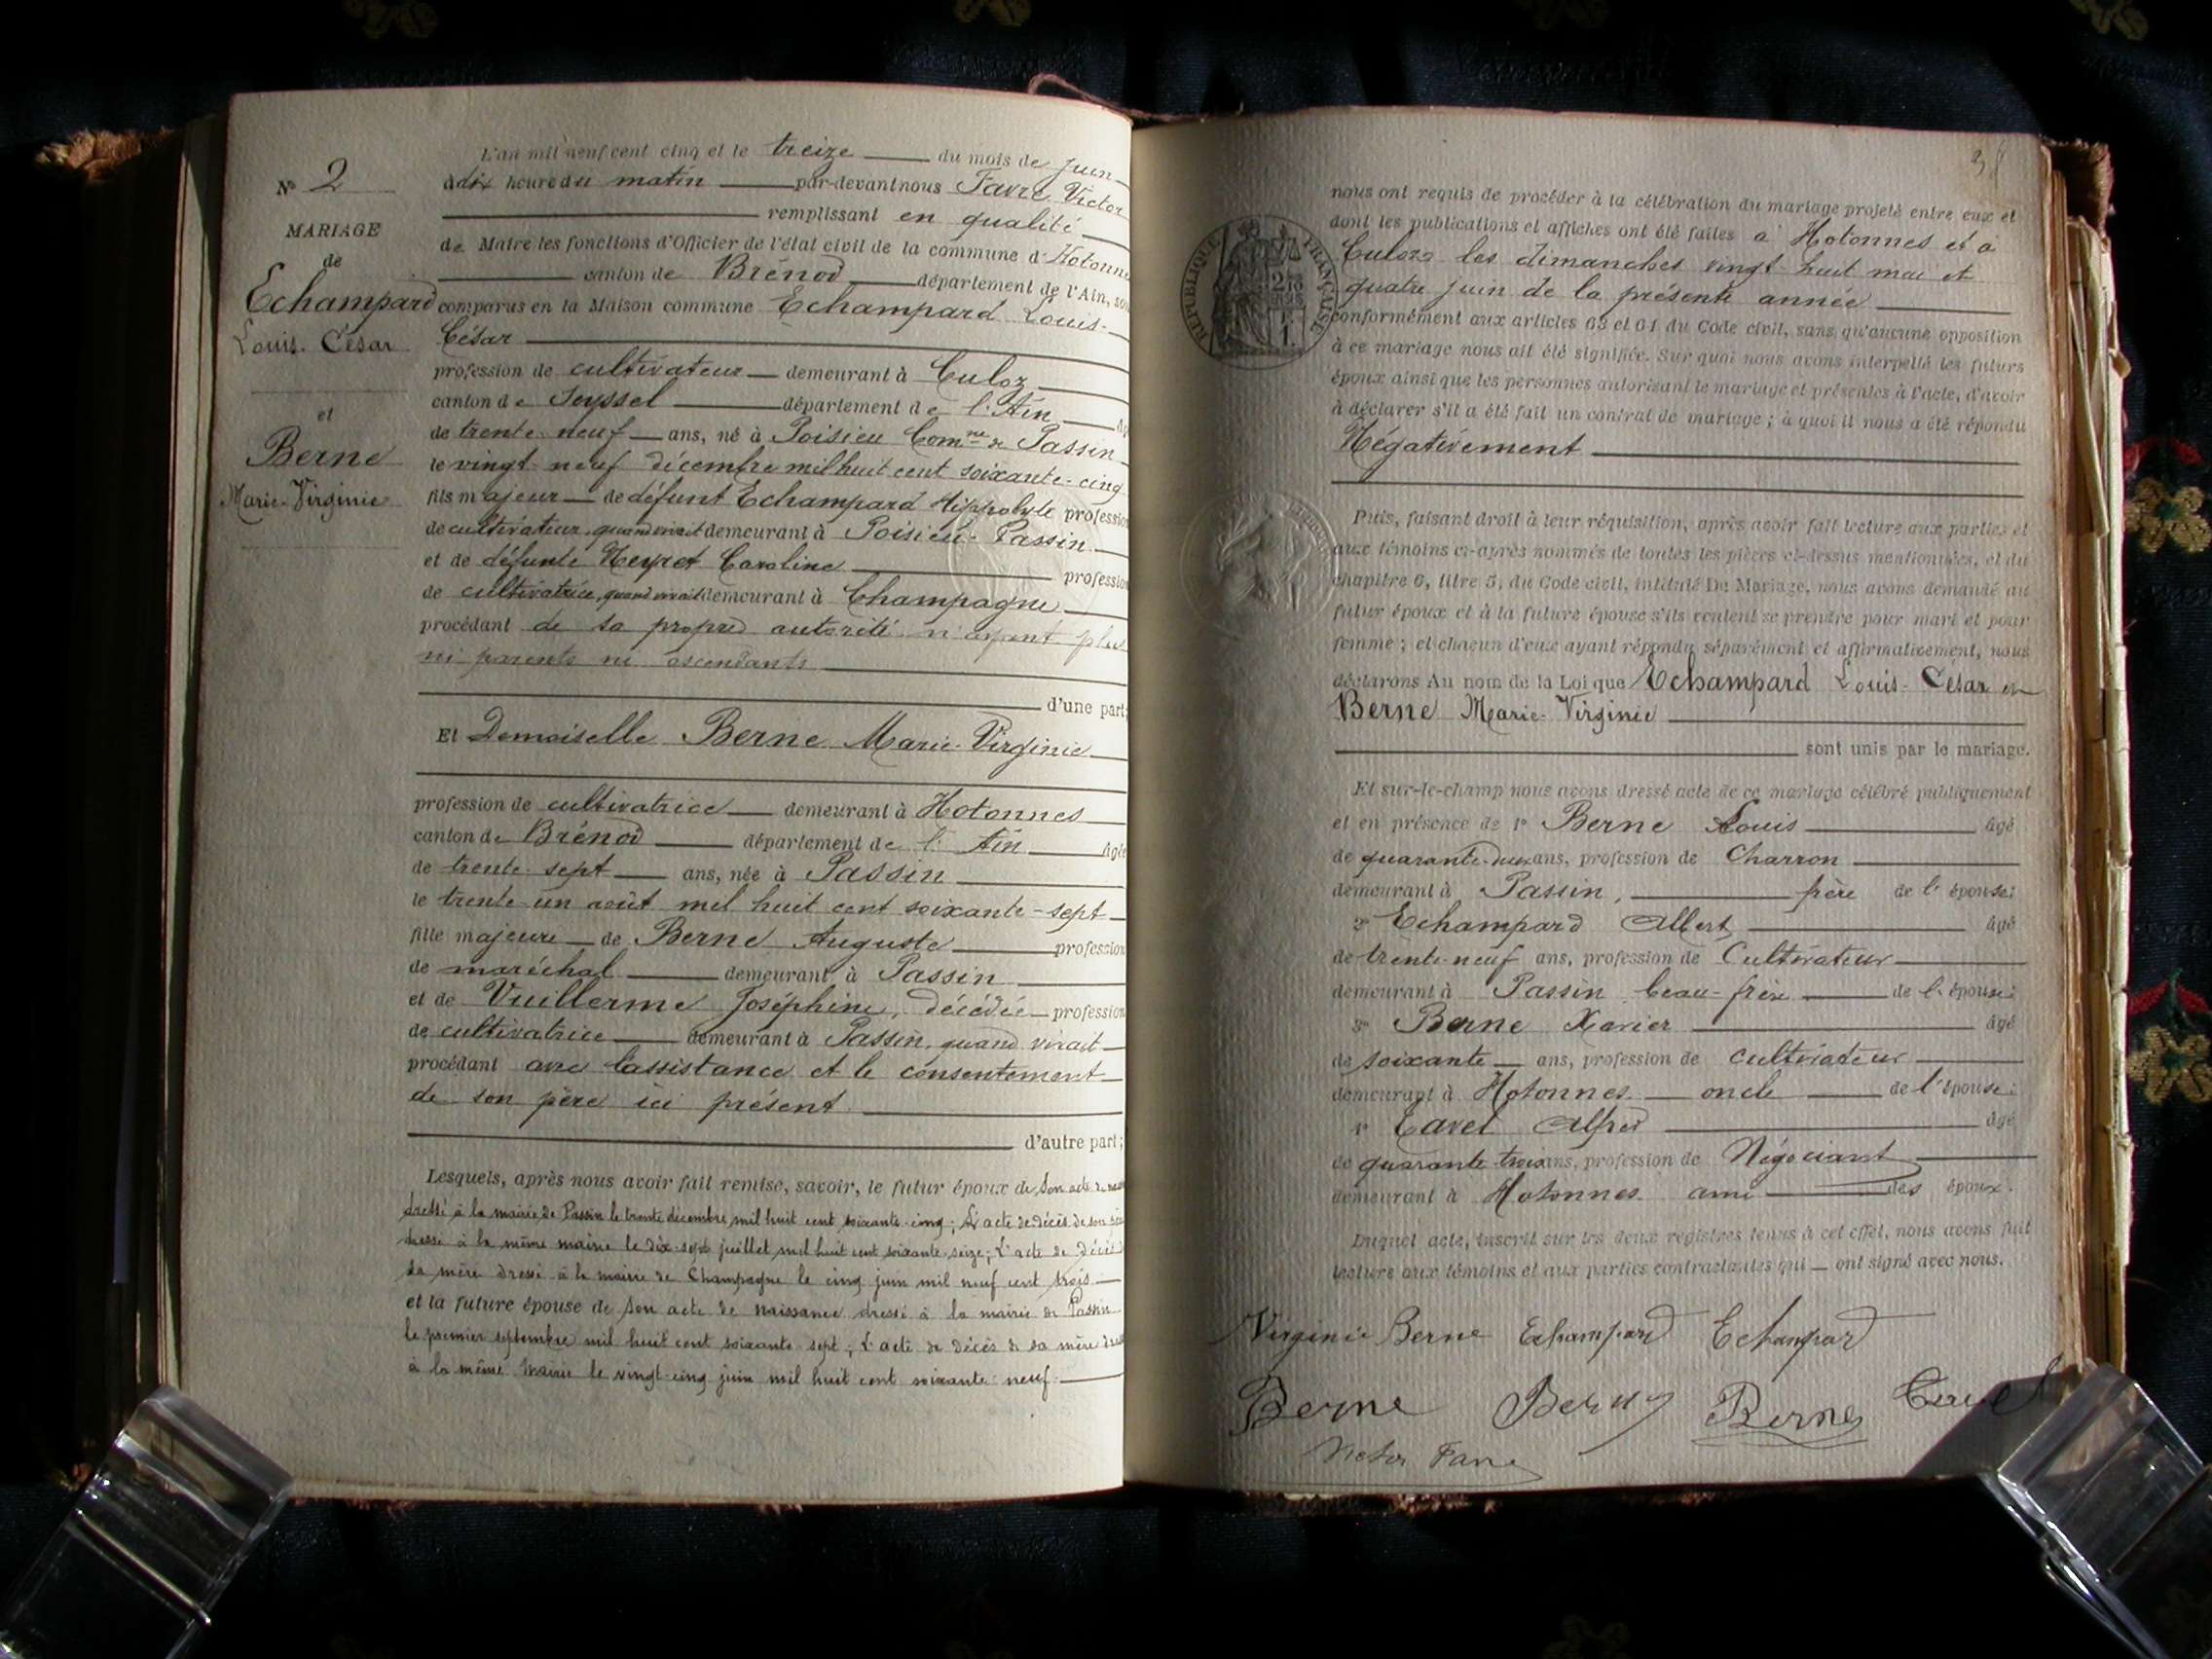 N° 2
MARIAGE
de
Echampard
Louis-César
et
Berne
Marie-Virginie
L'an mil neuf cent cinq et le treize du mois de juin
à dix heure du matin par-devant nous Favre Victor
remplissant en qualité
de Maire les fonctions d'Officier de l'état civil de la commune d'Hotonnes
canton de Brénod département de l'Ain, sont
comparus en la Maison commune Echampard Louis-
César
profession de cultivateur demeurant à Culoz
canton de Seyssel département de l'Ain
de trente-neuf ans, né à Poisieu Comne de Passin
le vingt-neuf décembre mil huit cent soixante-cinq
fils majeur de défunt Echampard Hippolyte profession
de cultivateur, quand vivait demeurant à Poisieu-Passin
et de défunte Neyret Caroline profession
de cultivatrice, quand vivait demeurant à Champagne
procédant de sa propre autorité n'ayant plus
ni parents ni ascendants
d'une part;
Et Demoiselle Berne Marie-Virginie
profession de cultivatrice demeurant à Hotonnes
canton de Brénod département de l'Ain âgée
de trente-sept ans, née à Passin
le trente-un août mil huit cent soixante-sept
fille majeure de Berne Auguste profession
de maréchal demeurant à Passin
et de Vuillerme Joséphine, décédée profession
de cultivatrice demeurant à Passin, quand vivait
procédant avec l'assistance et le consentement
de son père ici présent.
d'autre part;
Lesquels, après nous avoir fait remise, savoir, le futur époux de son acte de
dressé à la mairie de Passin le trente décembre mil huit cent soixante-cinq; L'acte de décès de son
dressé à la même mairie le dix-sept juillet mil huit cent soixante-seize; L'acte de décès
sa mère dressé à la mairie de Champagne le cinq juin mil neuf cent trois
et la future épouse de son acte de naissance dressé à la mairie de Passin
le premier septembre mil huit cent soixante-sept; L'acte de décès de sa mère
à la même mairie le vingt-cinq juin mil huit cent soixante-neuf.
38
RÉPUBLIQUE FRANÇAISE
nous ont requis de procéder à la célébration du mariage projeté entre eux et
dont les publications et affiches ont été faites à Hotonnes et à
Culoz les dimanches vingt-huit mai et
quatre juin de la présente année
conformément aux articles 63 et 64 du Code civil, sans qu'aucune opposition
à ce mariage nous ait été signifiée. Sur quoi nous avons interpellé les futurs
époux ainsi que les personnes autorisant le mariage et présentes à l'acte, d'avoir
à déclarer s'il a été fait un contrat de mariage; à quoi il nous a été répondu
Négativement
Puis, faisant droit à leur réquisition, après avoir fait lecture aux parties et
aux témoins ci-après nommés de toutes les pièces ci-dessus mentionnées, et du
chapitre 6, titre 5, du Code civil, intitulé Du Mariage, nous avons demandé au
futur époux et à la future épouse s'ils veulent se prendre pour mari et pour
femme; et chacun d'eux ayant répondu séparément et affirmativement, nous
déclarons Au nom de la Loi que Echampard Louis-César et
Berne Marie-Virginie
sont unis par le mariage.
Et sur-le-champ nous avons dressé acte de ce mariage célébré publiquement
et en présence de 1° Berne Louis âgé
de quarante-deux ans, profession de Charron
demeurant à Passin, frère de l'épouse;
2° Echampard Albert âgé
de trente-neuf ans, profession de Cultivateur
demeurant à Passin beau-frère de l'épouse;
3° Berne Xavier âgé
de soixante ans, profession de cultivateur
demeurant à Hotonnes oncle de l'épouse;
4° Tavel Alfred âgé
de quarante-trois ans, profession de Négociant
demeurant à Hotonnes ami des époux.
Duquel acte, inscrit sur les deux registres tenus à cet effet, nous avons fait
lecture aux témoins et aux parties contractantes qui ont signé avec nous.
Virginie Berne Echampard Echampard
Berne Berne Berne Tavel
Victor Favre